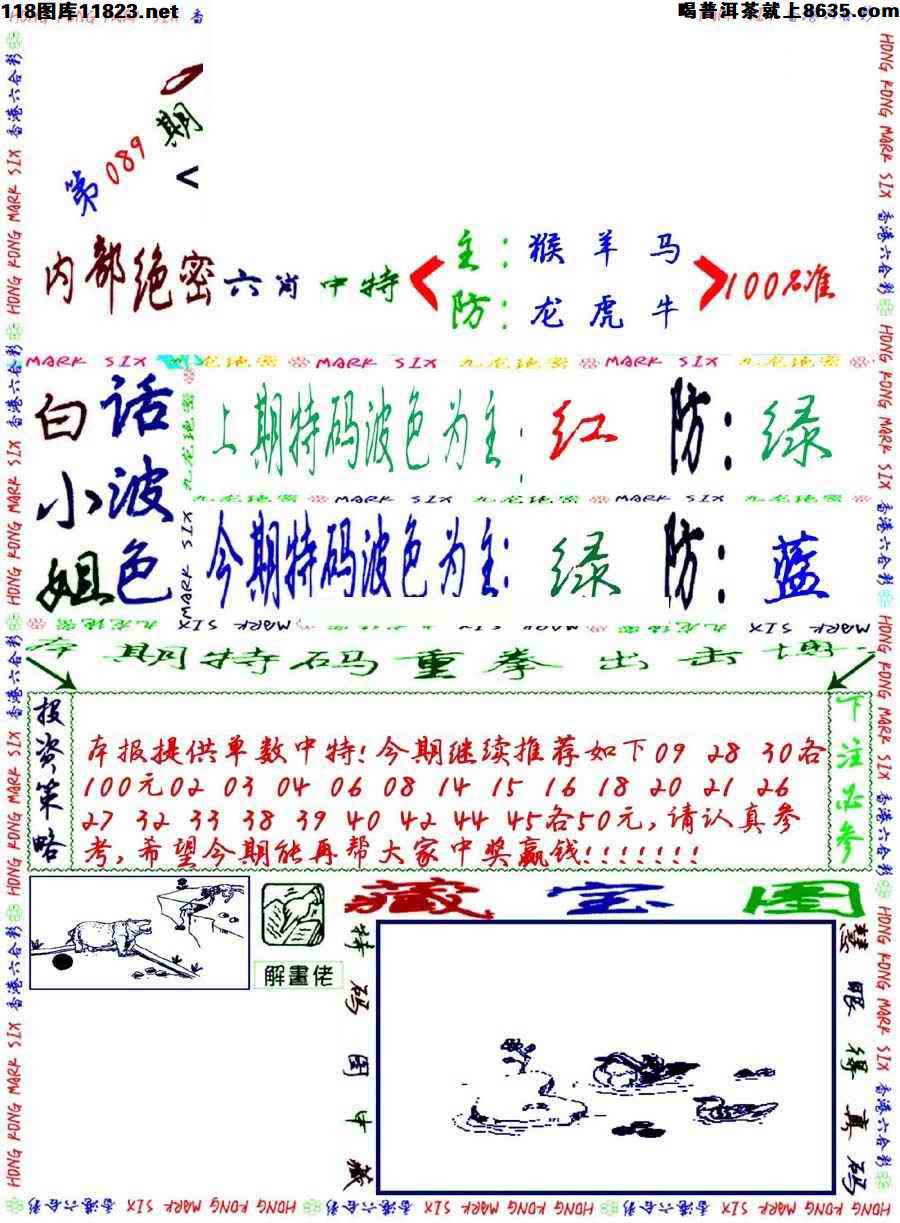 118图库11823.net
喝普洱茶就上8635.com
第089期
内部绝密六肖中特
主：猴 羊 马
防：龙 虎 牛
100%准
白话小姐
波色
上期特码波色为主：红 防：绿
今期特码波色为主：绿 防：蓝
本期特码重拳出击
投资策略
本报提供单数中特！今期继续推荐如下09 28 30各
100元02 03 04 06 08 14 15 16 18 20 21 26
27 32 33 38 39 40 42 44 45各50元，请认真参
考，希望今期能再帮大家中奖赢钱！！！！！！！
下注必参
解畫佬
藏宝图
特码图中藏
慧眼得真码
HONG KONG MARK SIX 香港六合彩
MARK SIX 九龙绝密